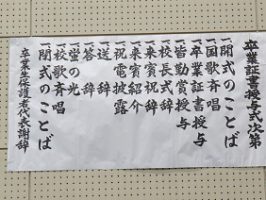 卒業証書授与式次第
一開式のことば
一国歌斉唱
一卒業証書授与
一皆勤賞授与
一校長式辞
一来賓祝辞
一来賓紹介
一祝電披露
一送辞
一答辞
一蛍の光
一校歌斉唱
一閉式のことば
卒業生保護者代表謝辞